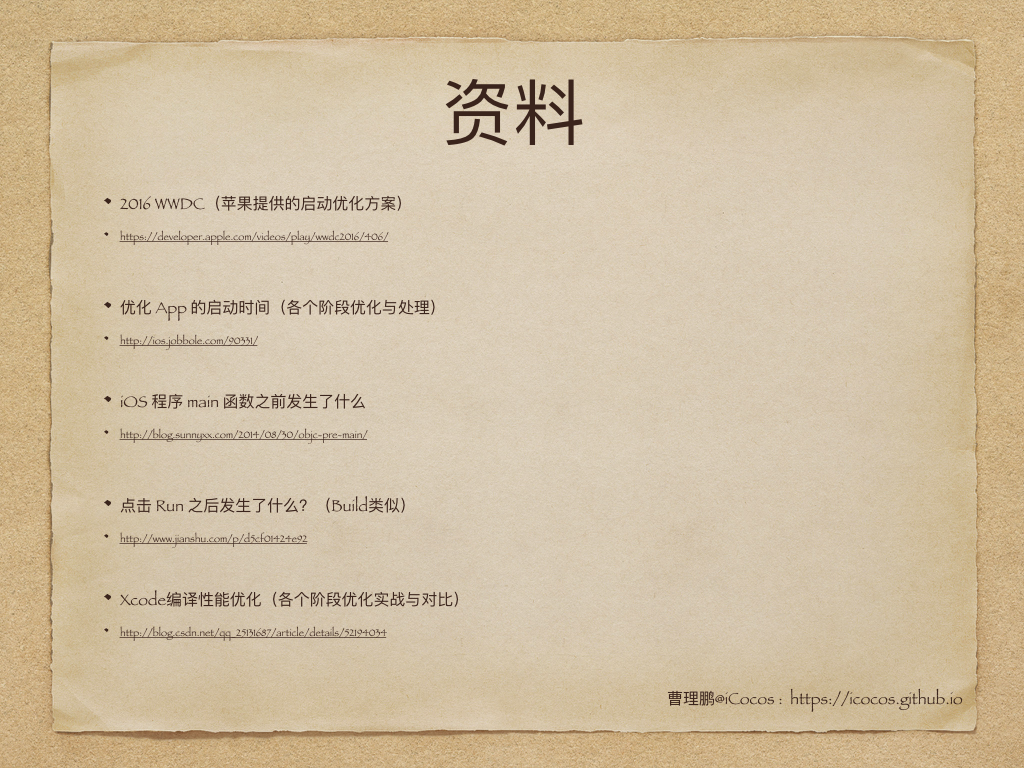 资料
2016 WWDC（苹果提供的启动优化方案）
https://developer.apple.com/videos/play/wwdc2016/406/
优化 App 的启动时间（各个阶段优化与处理）
http://ios.jobbole.com/90331/
iOS 程序 main 函数之前发生了什么
http://blog.sunnyxx.com/2014/08/30/objc-pre-main/
点击 Run 之后发生了什么？（Build类似）
http://www.jianshu.com/p/d5cf01424e92
Xcode编译性能优化（各个阶段优化实战与对比）
http://blog.csdn.net/qq_25131687/article/details/52194034
曹理鹏@iCocos : https://icocos.github.io